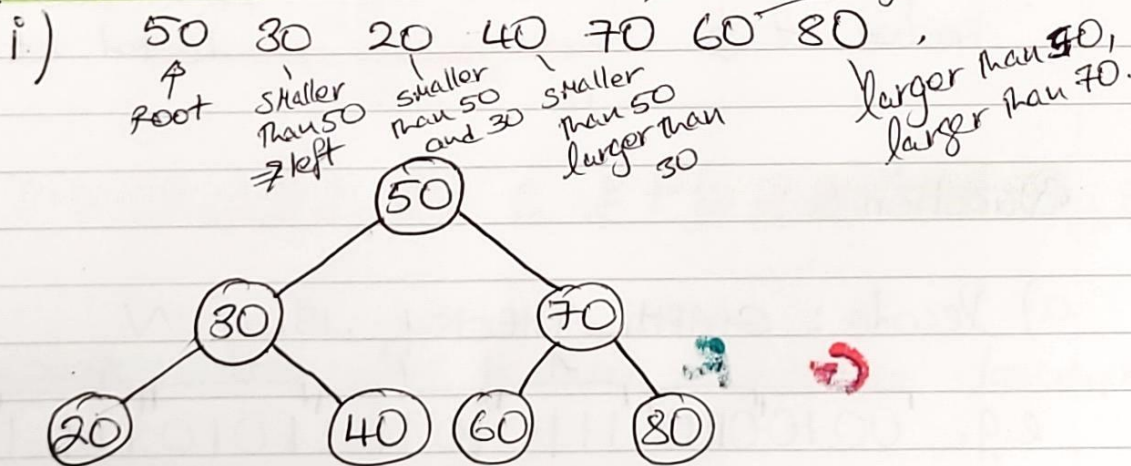 i) 50 30 20 40 70 60 80 .
Root
smaller
than 50
⇒ left
smaller
than 50
and 30
smaller
than 50
larger than
30
larger than 50,
larger than 70.
50
30 70
20 40 60 80